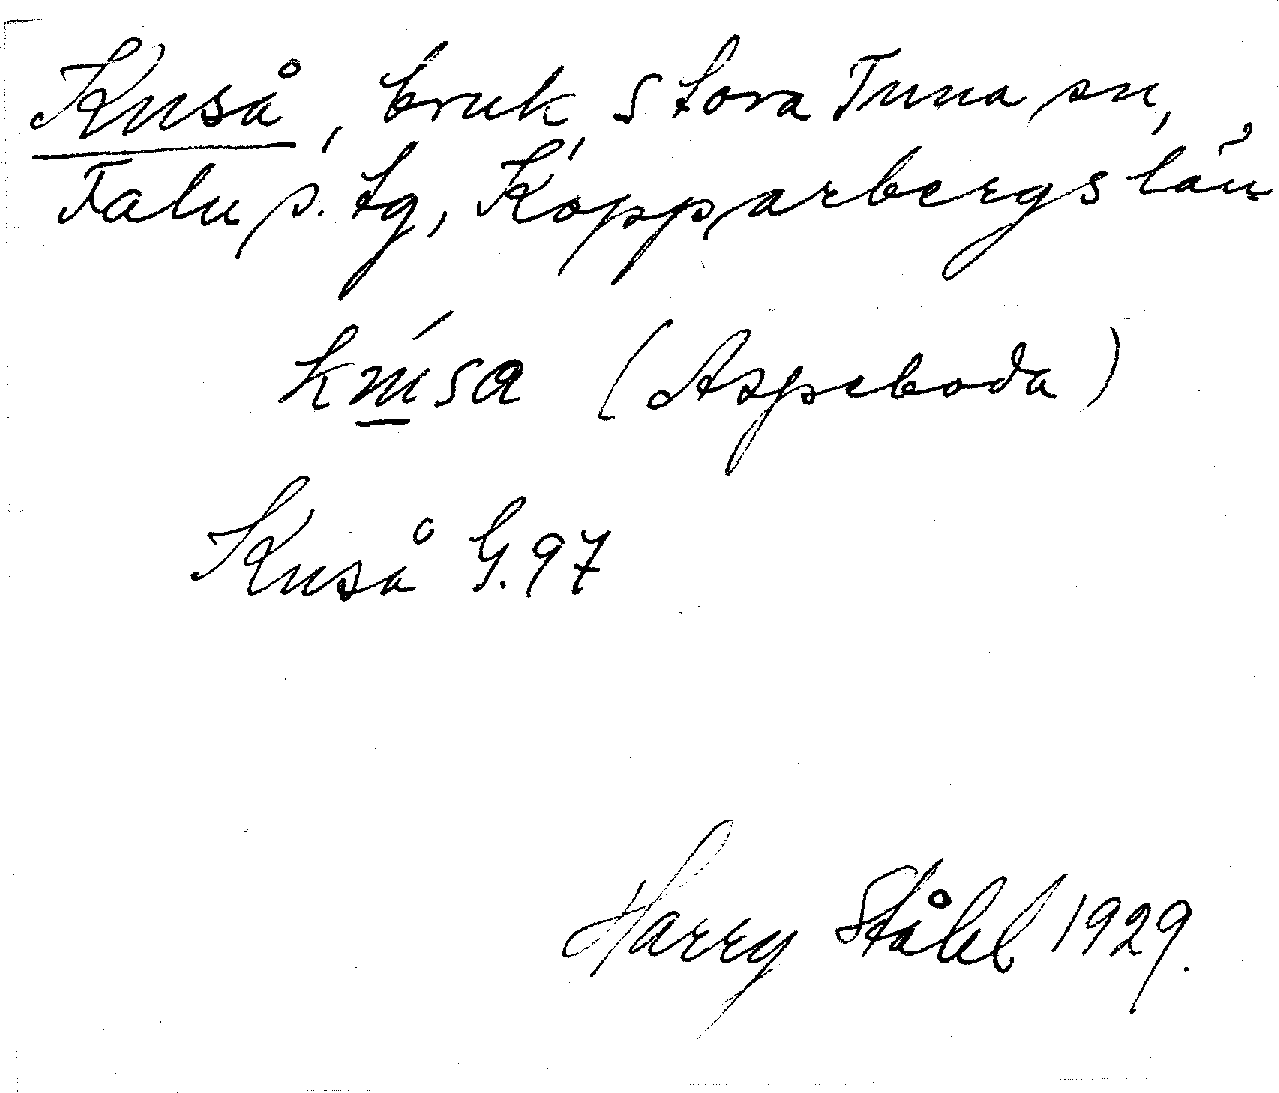 Kuså, bruk, Stora Tuna sn,
Falu s. tg, Kopparbergs län
(Aspeboda)
Kuså G. 97
Harry Ståhl 1929.